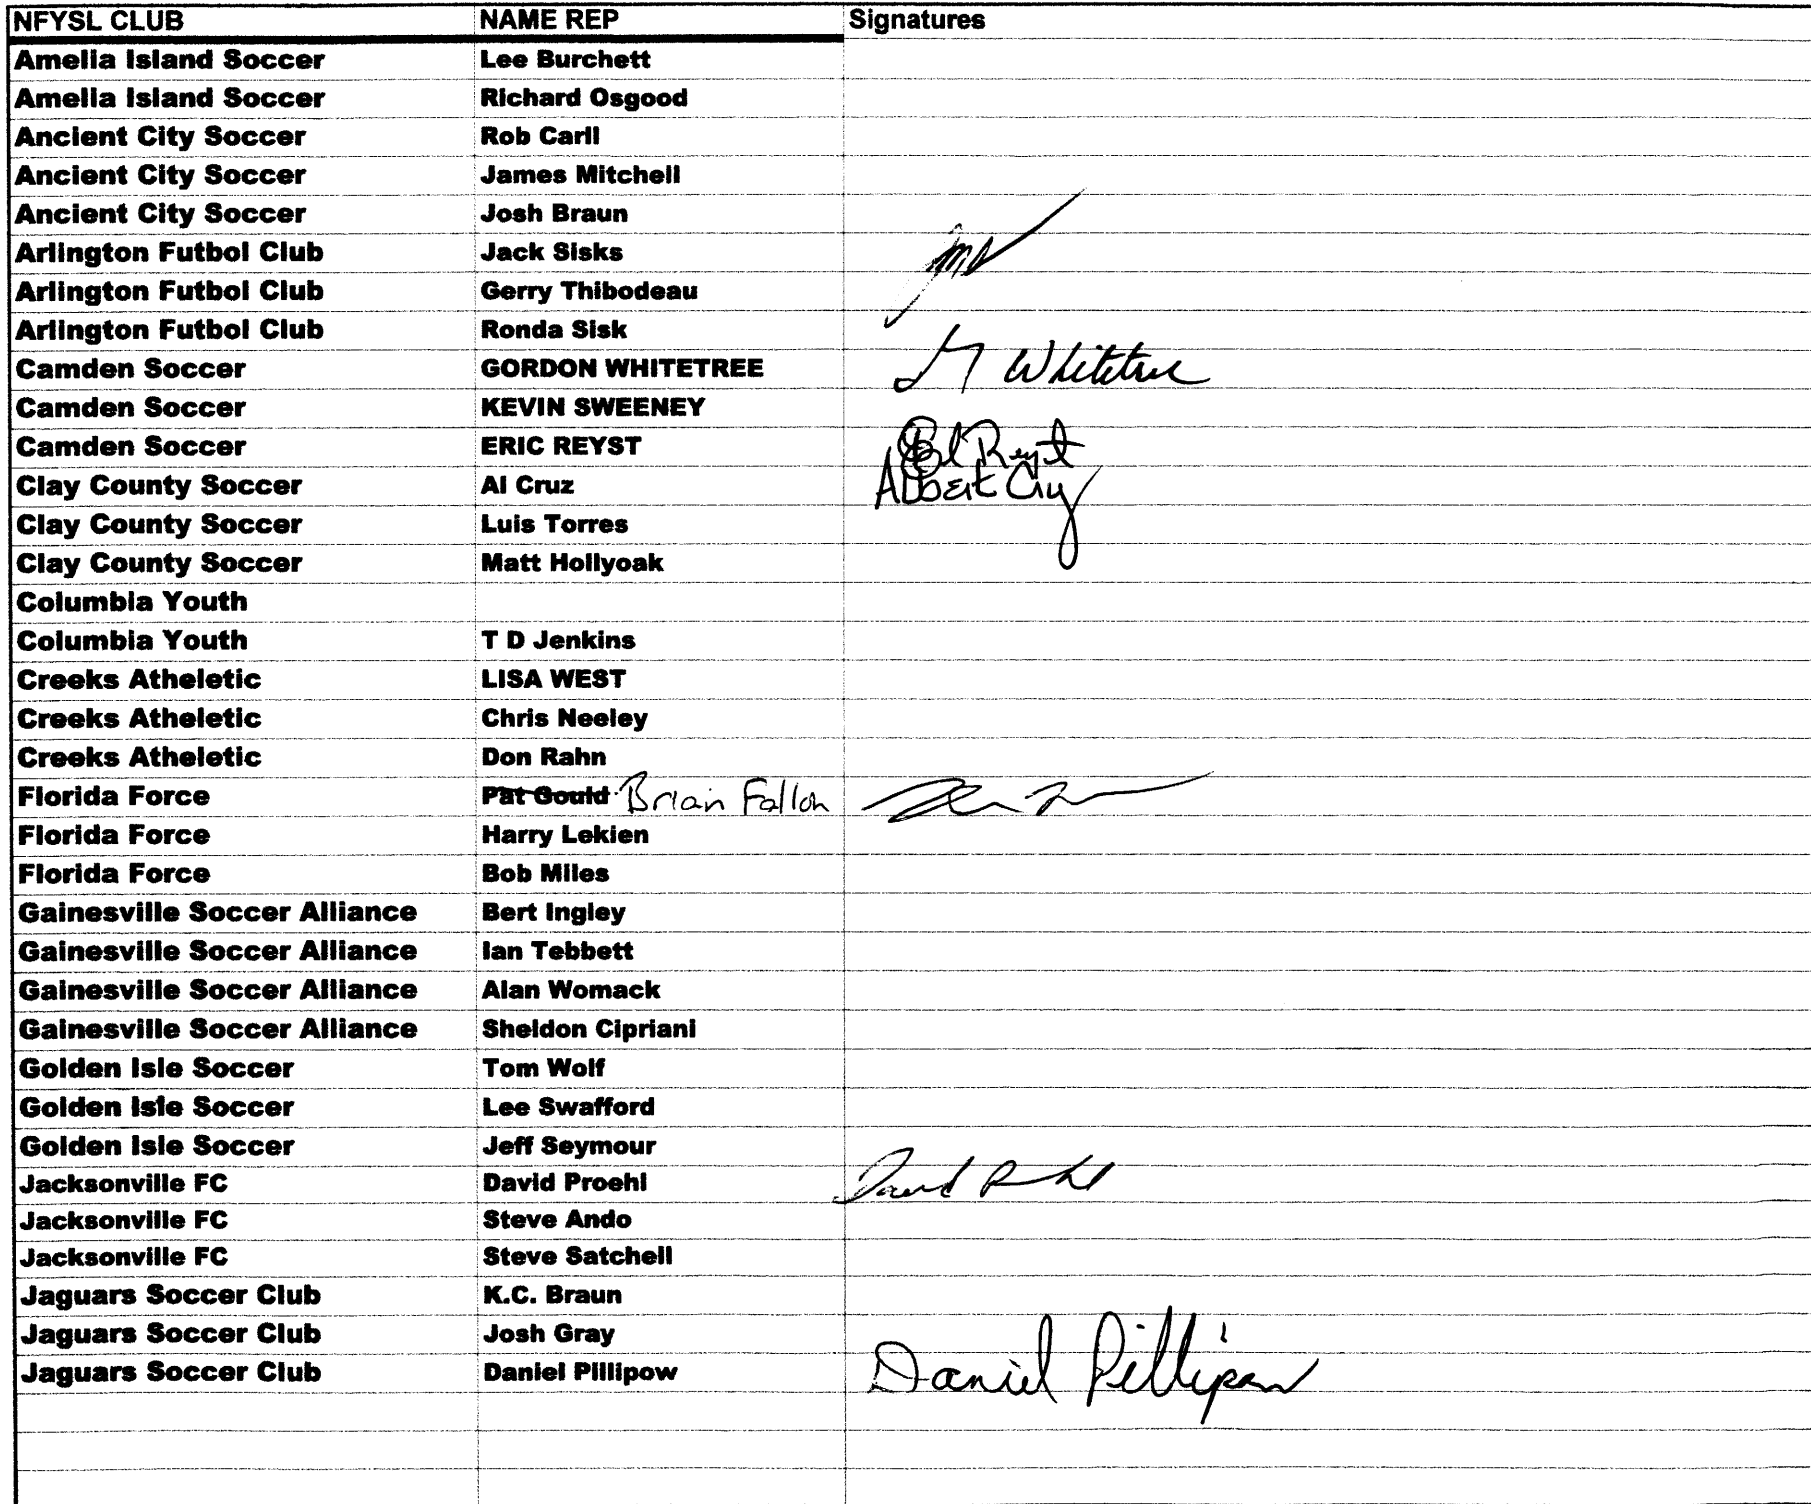 NFYSL CLUB NAME REP Signatures
Amelia Island Soccer Lee Burchett
Amelia Island Soccer Richard Osgood
Ancient City Soccer Rob Carll
Ancient City Soccer James Mitchell
Ancient City Soccer Josh Braun
Arlington Futbol Club Jack Sisks
Arlington Futbol Club Gerry Thibodeau
Arlington Futbol Club Ronda Sisk
Camden Soccer GORDON WHITETREE G Whitetree
Camden Soccer KEVIN SWEENEY
Camden Soccer ERIC REYST Reyst
Clay County Soccer Al Cruz Albert Cruz
Clay County Soccer Luis Torres
Clay County Soccer Matt Hollyoak
Columbia Youth
Columbia Youth T D Jenkins
Creeks Atheletic LISA WEST
Creeks Atheletic Chris Neeley
Creeks Atheletic Don Rahn
Florida Force Pat Gould Brian Fallon
Florida Force Harry Lekien
Florida Force Bob Miles
Gainesville Soccer Alliance Bert Ingley
Gainesville Soccer Alliance Ian Tebbett
Gainesville Soccer Alliance Alan Womack
Gainesville Soccer Alliance Sheldon Cipriani
Golden Isle Soccer Tom Wolf
Golden Isle Soccer Lee Swafford
Golden Isle Soccer Jeff Seymour
Jacksonville FC David Proehl David Proehl
Jacksonville FC Steve Ando
Jacksonville FC Steve Satchell
Jaguars Soccer Club K.C. Braun
Jaguars Soccer Club Josh Gray
Jaguars Soccer Club Daniel Pillipow Daniel Pillipow